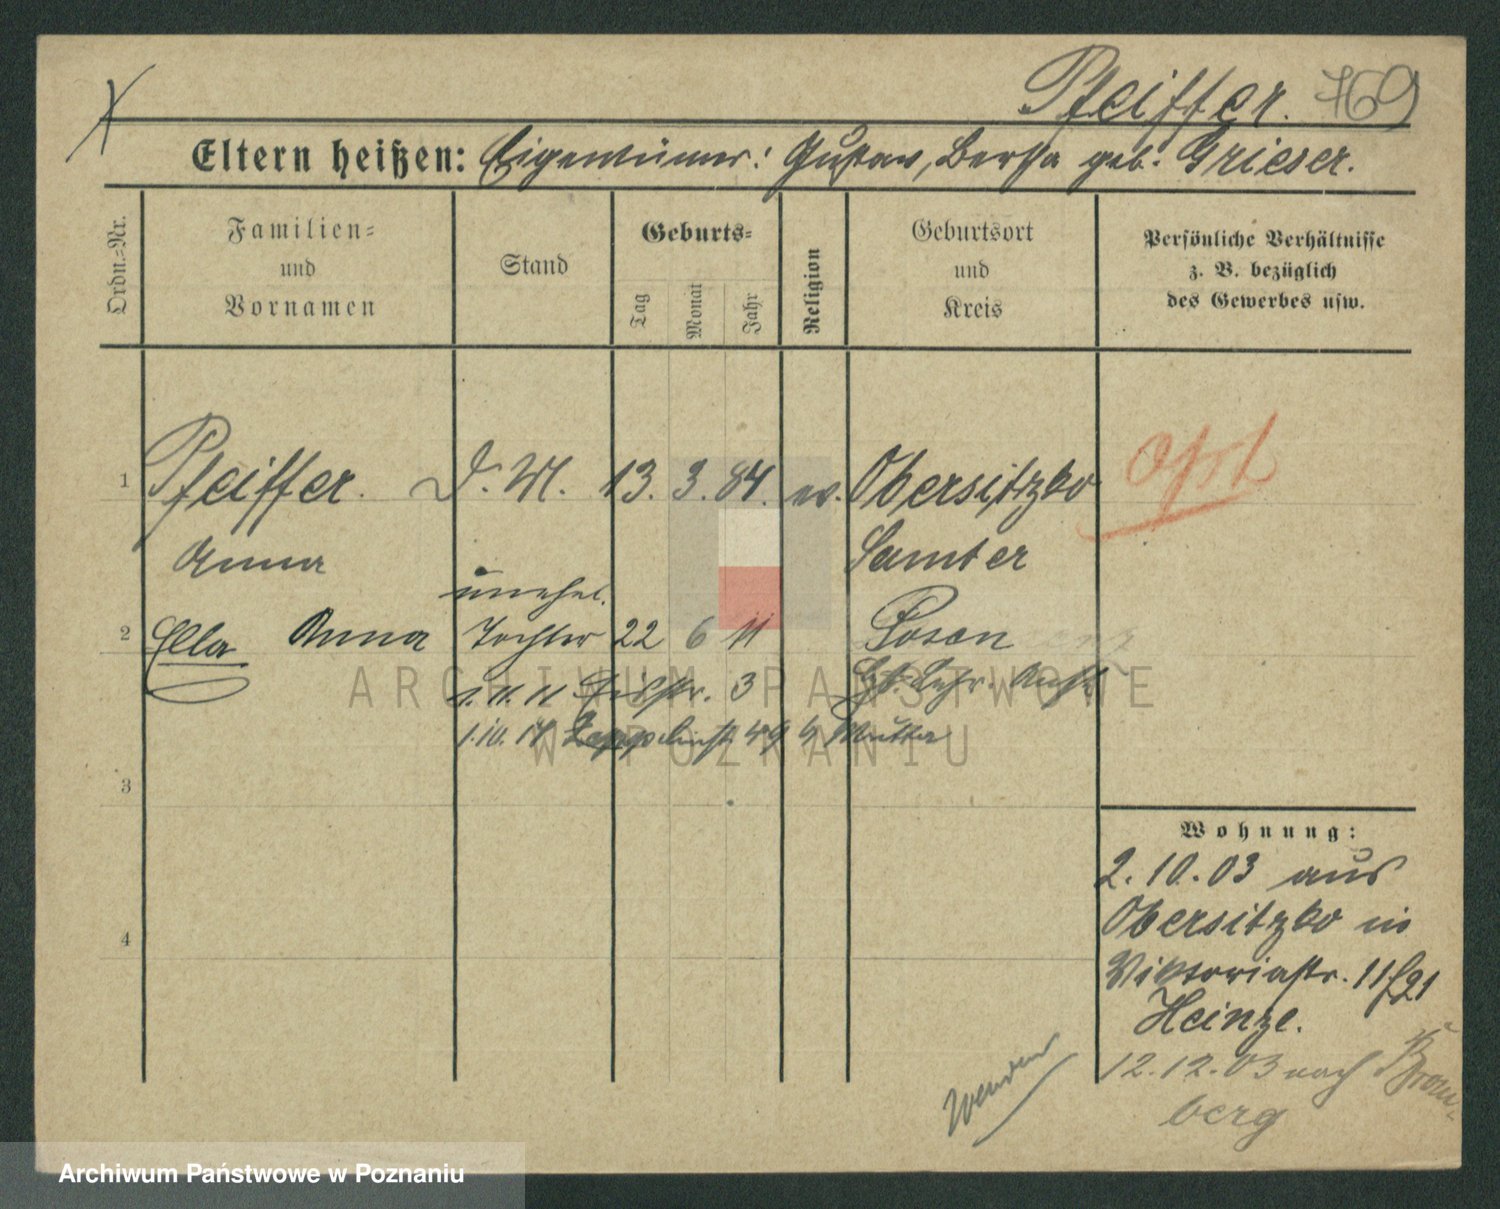 Pfeiffer. 769
Eltern heißen: Eigentümer: Gustav, Bertha geb. Grieser.
Ordn.-Nr.
Familien- und Vornamen
Stand
Geburts-
Tag Monat Jahr
Religion
Geburtsort und Kreis
Persönliche Verhältnisse
z. B. bezüglich
des Gewerbes usw.
1 Pfeiffer. D. M. 13. 3. 84. ev. Obersitzko
Anna Samter
unehel.
2 Ella Anna Tochter 22 6 11 Posen
1. 11. 11 3
1. 10. 14 49 Mutter
3
4
Wohnung:
2. 10. 03 aus
Obersitzko in
Viktoriastr. 11
Heinze.
12. 12. 03 nach Brom-
berg
Wenden
ARCHIWUM PAŃSTWOWE
W POZNANIU
Archiwum Państwowe w Poznaniu